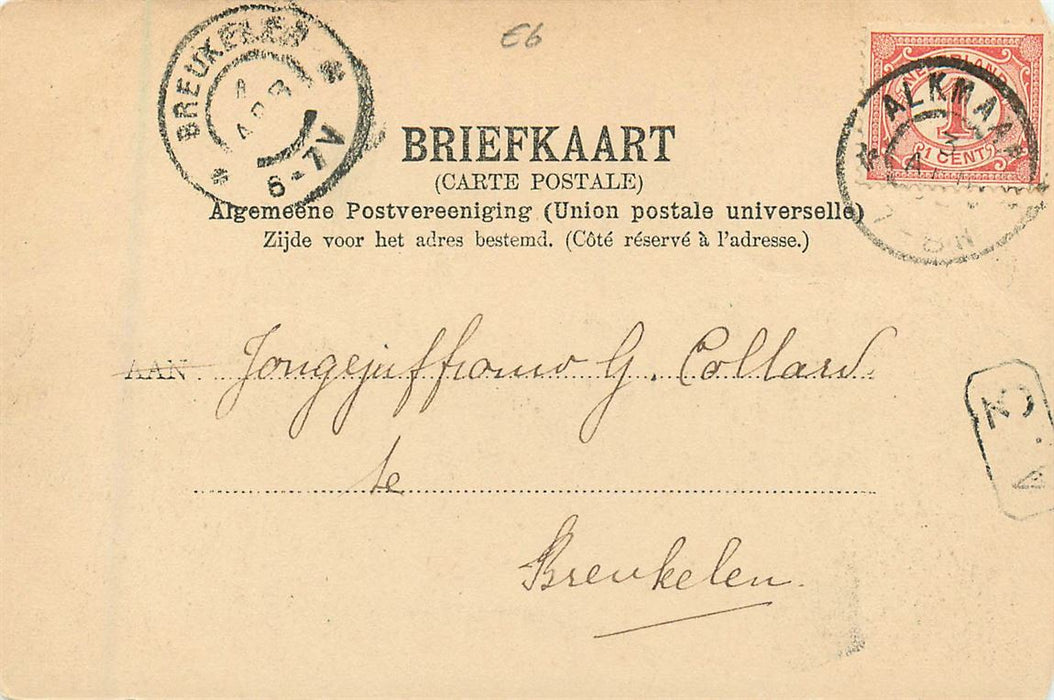 E6
BREUKELEN
6-7V
NEDERLAND
1
1 CENT
ALKMAAR
7-8N
BRIEFKAART
(CARTE POSTALE)
Algemeene Postvereeniging (Union postale universelle)
Zijde voor het adres bestemd. (Côté réservé à l'adresse.)
AAN Jongejuffrouw G. Collard.
te
Breukelen.